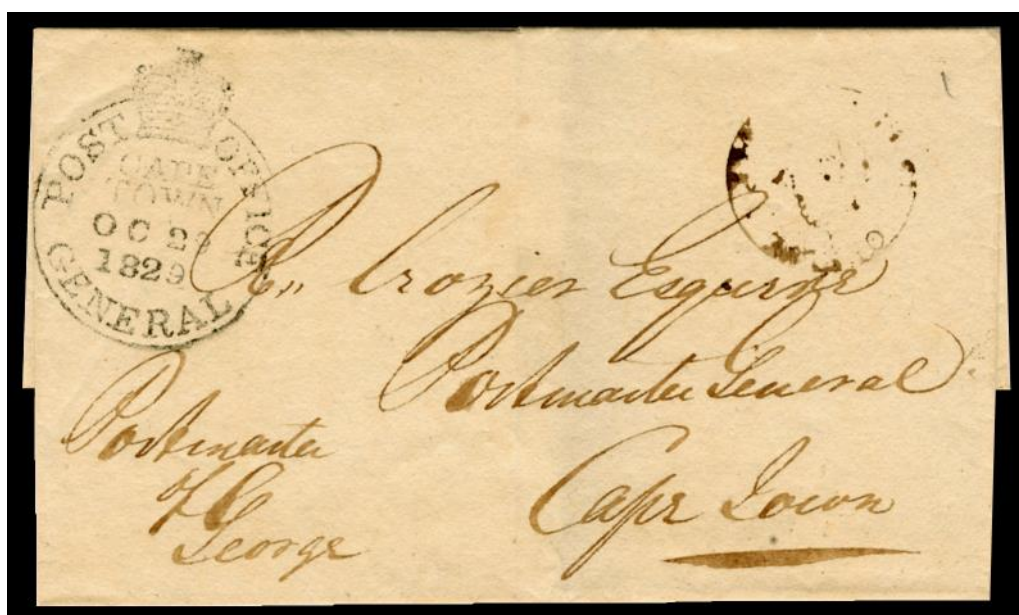 POST OFFICE
CAPE
TOWN
OC 2
1829
GENERAL
R,, Crozier Esquire
Postmaster General
Cape Town
Postmaster
of
George